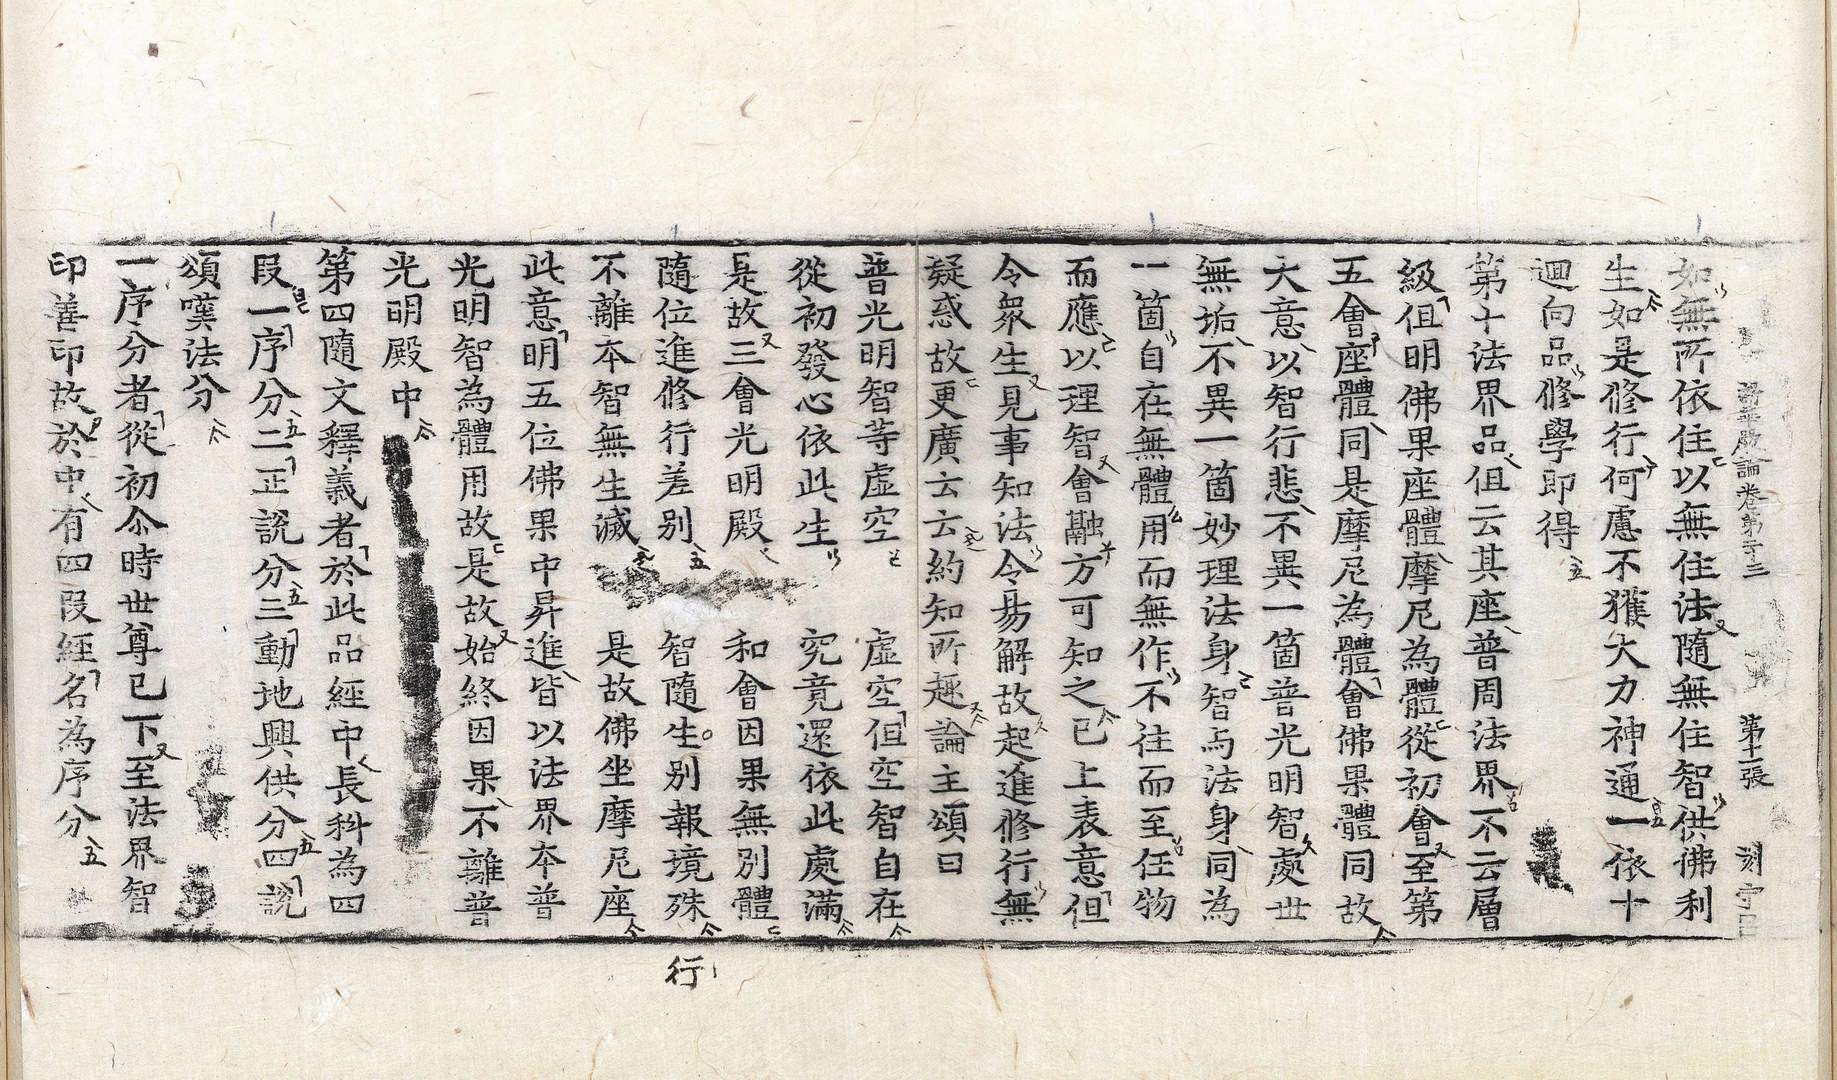 新華嚴論卷第二十三 第十一張
如無所依住以無住法隨無住智供佛利
生如是修行何慮不獲大力神通一依十
迴向品修學即得
第十法界品但云其座普周法界不云層
級但明佛果座體摩尼為體從初會至第
五會座體同是摩尼為體會佛果體同故
大意以智行悲不異一箇普光明智處世
無垢不異一箇妙理法身智与法身同為
一箇自在無體用而無作不往而至任物
而應以理智會融方可知之已上表意但
令衆生見事知法令易解故起進修行無
疑惑故更廣云云約知所趣論主頌曰
普光明智等虛空 虛空但空智自在
從初發心依此生 究竟還依此處滿
是故三會光明殿 和會因果無別體
隨位進修行差別 智隨生別報境殊
行
不離本智無生滅 是故佛坐摩尼座
此意明五位佛果中昇進皆以法界本普
光明智為體用故是故始終因果不離普
光明殿中
第四隨文釋義者於此品經中長科為四
段一序分二正說分三動地興供分四說
頌嘆法分
一序分者從初尒時世尊已下至法界智
印善印故於中有四段經名為序分